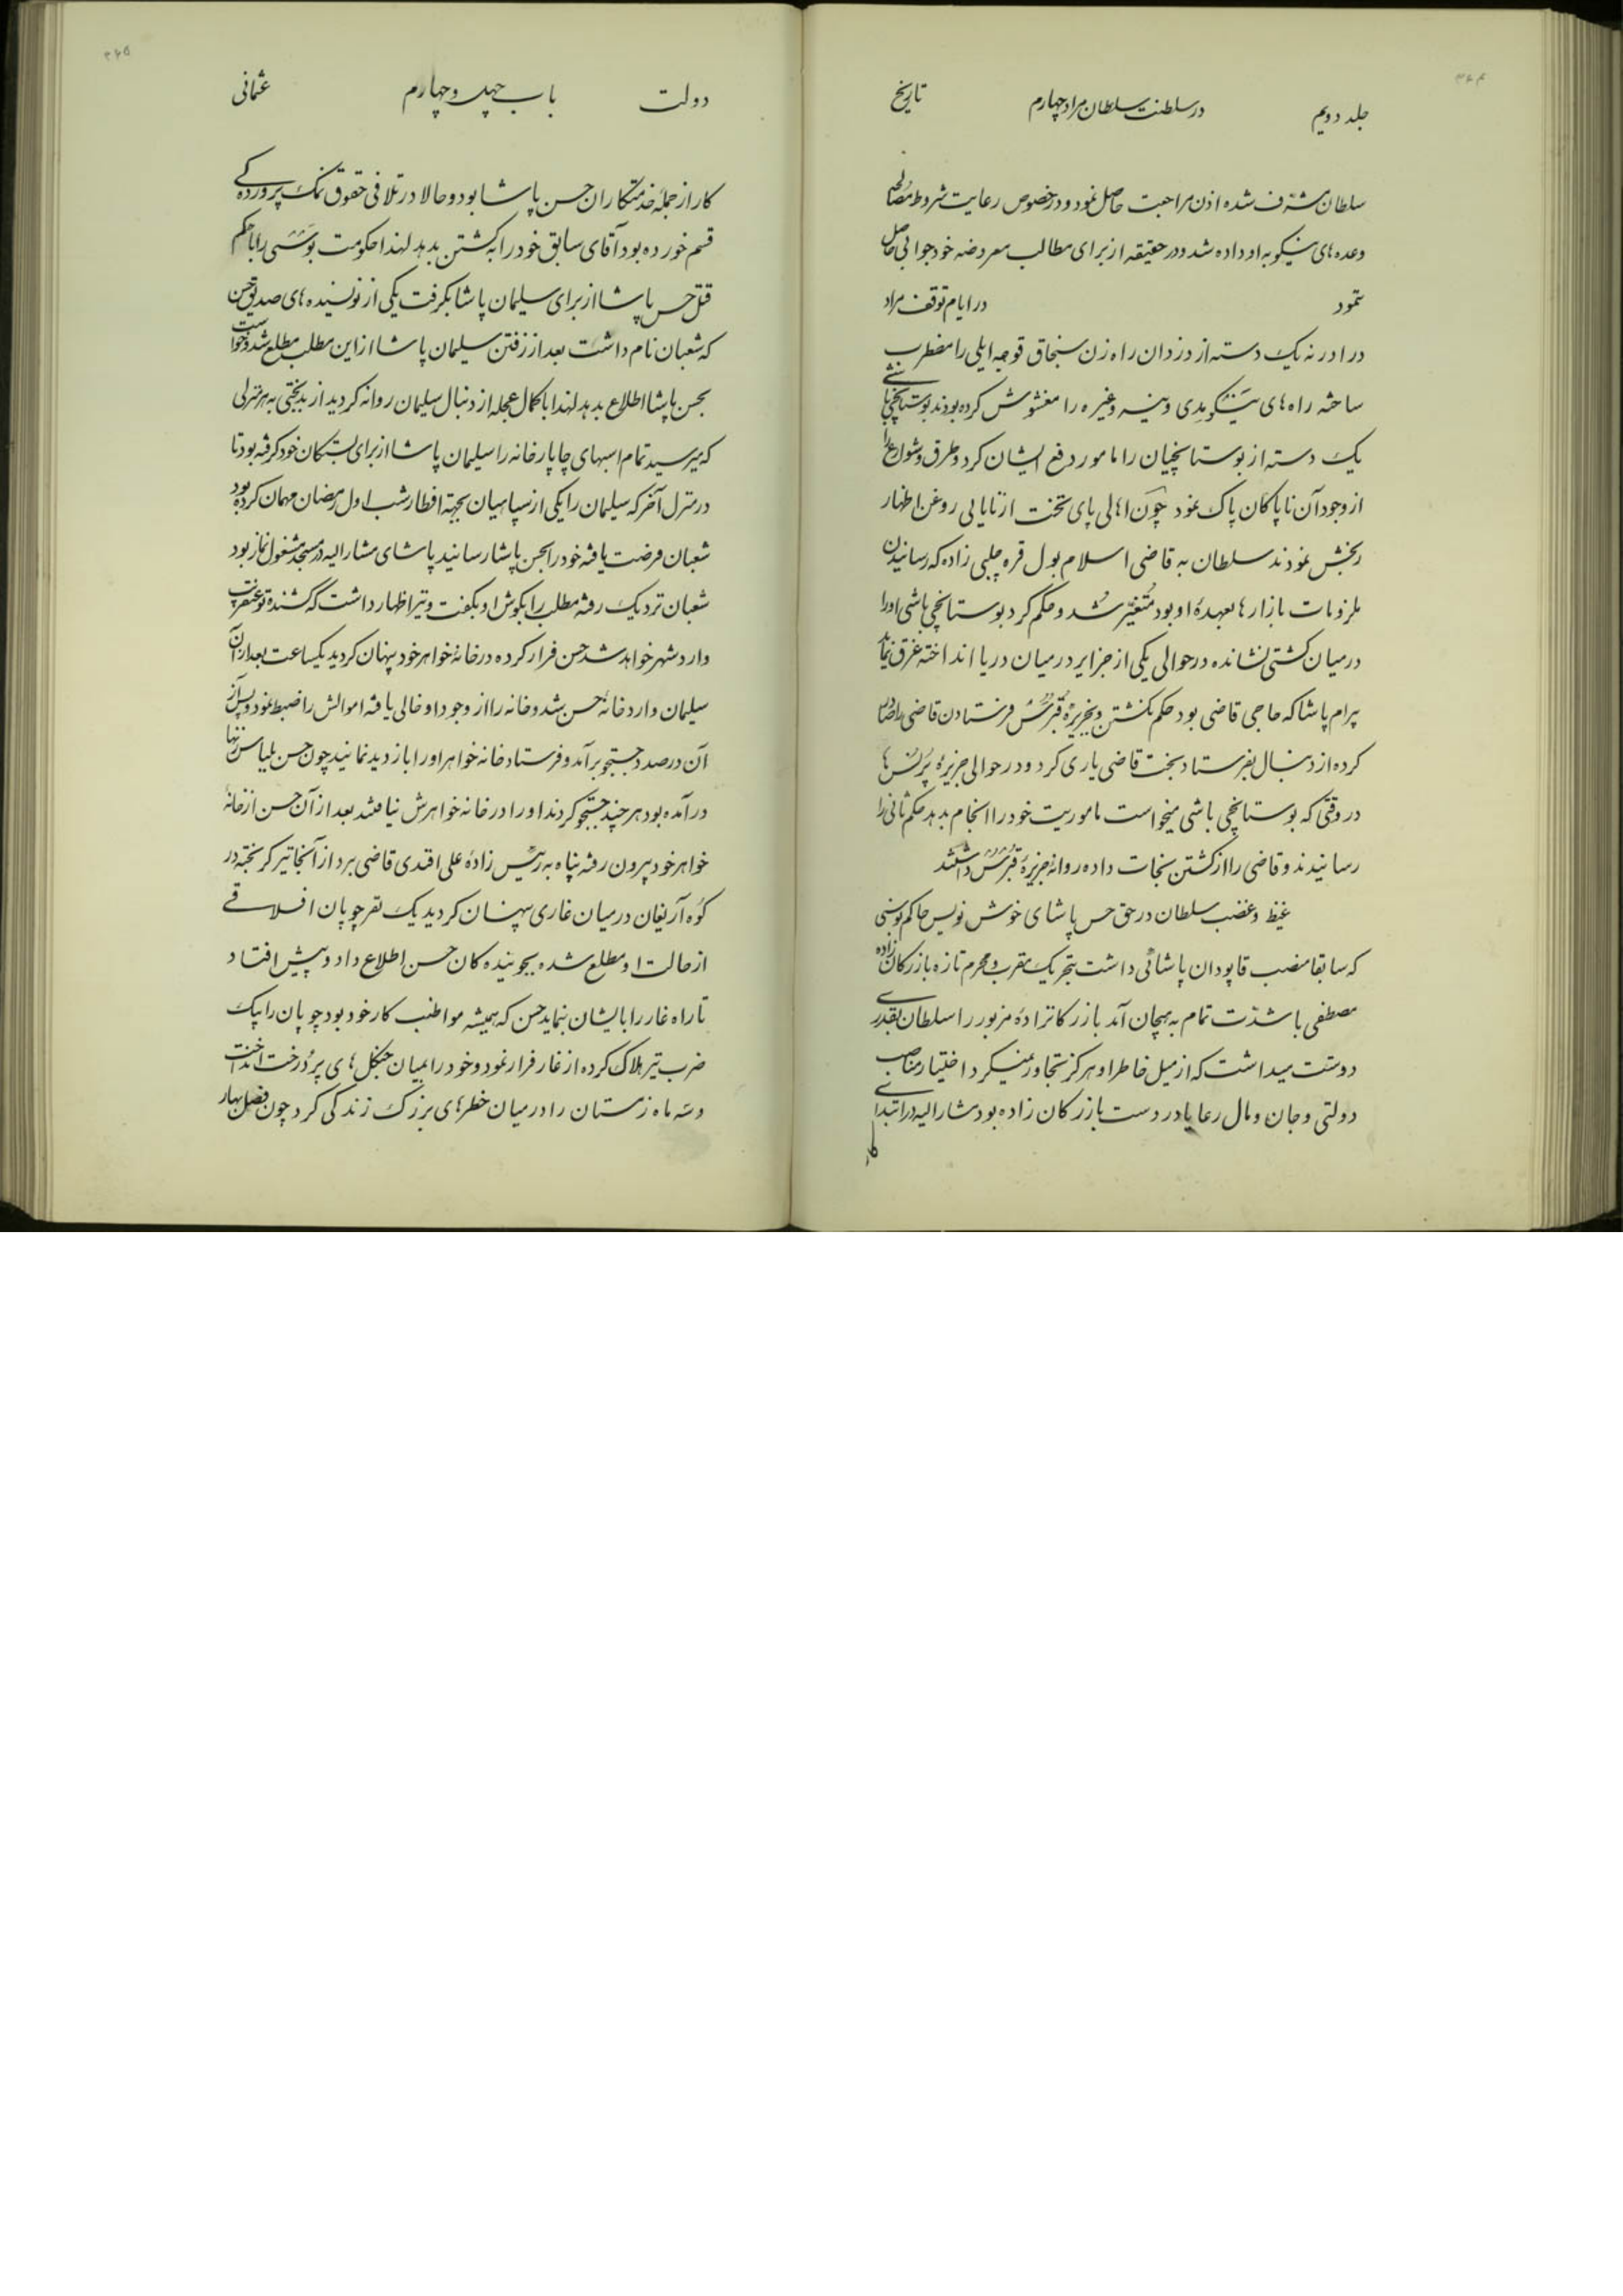 ۳۶۴
جلد دویم در سلطنت سلطان مراد چهارم تاریخ
سلطان مشرف شده اذن مراجعت حاصل نمود و در خصوص رعایت شروط مصالحه
وعده های نیکو به او داده شد و در حقیقه از برای مطالب معروضه خود جوابی حاصل
ننمود در ایام توقف مراد
در ادرنه یک دسته از دزدان راه زن سنجاق قوجه ایلی را مضطرب
ساخته راه های و غیره را مغشوش کرده بودند بوستانچی باشی
یک دسته از بوستانچیان را مامور دفع ایشان کرد و طرق و شوارع را
از وجود آن ناپاکان پاک نمود چون اهالی پای تخت از نایابی روغن اظهار
رنجش نمودند سلطان به قاضی اسلامبول قره چلبی زاده که رسانیدن
ملزومات بازارها بعهدهٔ او بود متغیر شد و حکم کرد بوستانچی باشی او را
در میان کشتی نشانده در حوالی یکی از جزایر در میان دریا انداخته غرق نماید
بیرام پاشا که حامی قاضی بود حکم نکشتن و بجزیرهٔ قبرس فرستادن قاضی را صادر
کرده از دنبال بفرستاد بخت قاضی یاری کرد و در حوالی جزیرهٔ پرنس ها
در وقتی که بوستانچی باشی میخواست ماموریت خود را انجام بدهد حکم ثانی را
رسانیدند و قاضی را از کشتن نجات داده روانه جزیرهٔ قبرس داشتند
غیظ و غضب سلطان در حق حسن پاشای خوش نویس حاکم بوسنی
که سابقا منصب قاپودان پاشائی داشت بتحریک مقرب و محرم تازه بازرکان زاده
مصطفی با شدت تمام به هیجان آمد بازرکانزادهٔ مزبور را سلطان بقدری
دوست میداشت که از میل خاطر او هرکز تجاوز نمیکرد اختیار مناصب
دولتی و جان و مال رعایا در دست بازرکان زاده بود مشارالیه در ابتدای
کار
۳۶۵
دولت باب چهل و چهارم عثمانی
کار از جملهٔ خدمتکاران حسن پاشا بود و حالا در تلافی حقوق نمک پروردگی
قسم خورده بود آقای سابق خود را به کشتن بدهد لهذا حکومت بوسنی را با حکم
قتل حسن پاشا از برای سلیمان پاشا بگرفت یکی از نویسنده های صدیق حسن
که شعبان نام داشت بعد از رفتن سلیمان پاشا از این مطلب مطلع شد و خواست
بحسن پاشا اطلاع بدهد لهذا با کمال عجله از دنبال سلیمان روانه کردید از بدبختی به هر منزلی
که میرسید تمام اسبهای چاپارخانه را سلیمان پاشا از برای بستکان خود کرفته بود تا
در منزل آخر که سلیمان را یکی از سپاهیان بجهة افطار شب اول رمضان مهمان کرده بود
شعبان فرصت یافته خود را بحسن پاشا رسانید پاشای مشارالیه در مسجد مشغول نماز بود
شعبان نزدیک رفته مطلب را بکوش او بگفت و نیز اظهار داشت که کشنده تو عنقریب
وارد شهر خواهد شد حسن فرار کرده در خانهٔ خواهر خود پنهان کردید یکساعت بعد از آن
سلیمان وارد خانهٔ حسن شد و خانه را از وجود او خالی یافته اموالش را ضبط نمود و پس از
آن در صدد جستجو برآمد و فرستاد خانه خواهر او را بازدید نمایند چون حسن بلباس زنها
در آمده بود هر چند جستجو کردند او را در خانه خواهرش نیافتند بعد از آن حسن از خانهٔ
خواهر خود بیرون رفته پناه به رئیس زادهٔ علی افندی قاضی برد از آنجا نیز کریخته در
کوه آریغان در میان غاری پنهان کردید یک نفر چوپان افلاقی
از حالت او مطلع شده بجوینده کان حسن اطلاع داد و پیش افتاد
تا راه غار را بایشان بنماید حسن که همیشه مواظب کار خود بود چوپان را بیک
ضرب تیر هلاک کرده از غار فرار نمود و خود را بمیان جنکل های پر درخت انداخت
و سه ماه زمستان را در میان خطرهای بزرک زندکی کرد چون فصل بهار